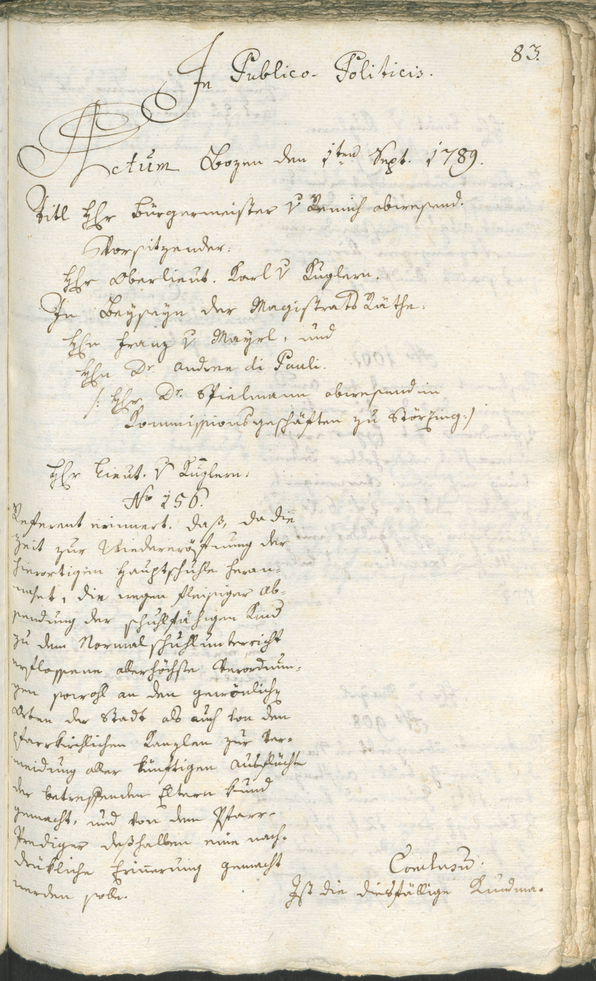 83.
In Publico-Politicis.
Actum Bozen den 1ten Sept. 1789.
Titl Hr Bürgermeister v Remich abwesend.
Vorsitzender:
Hr Oberlieut. Karl v Kuglern.
In Beyseyn der Magistrats Räthe:
Hrn Franz v Mayrl, und
Hrn Dr Andree di Pauli.
/: Hr Dr. Spielmann abwesend in
Kommissionsgeschäften zu Störzing :/
Hr Lieut. v Kuglern:
No 156.
Referent erinnert: daß, da die
Zeit zur Wiedereröffnung der
hierortigen Hauptschuhle heran-
nahet, die wegen fleisiger Ab-
sendung der schuhlfähigen Kind
zu dem Normalschuhlunterricht
erflossene allerhöchste Verordnun-
gen sowohl an den gewönlichen
Orten der Stadt als auch von den
pfarrkirchlichen Kanzlen zur Ver-
meidung aller künftigen Ausflüchte
der betreffenden Eltern kund
gemacht, und von dem Pfarr-
Prediger deßhalben eine nach-
drükliche Erinnerung gemacht
werden solle.
Conclusum:
Ist die diesfällige Kundma-